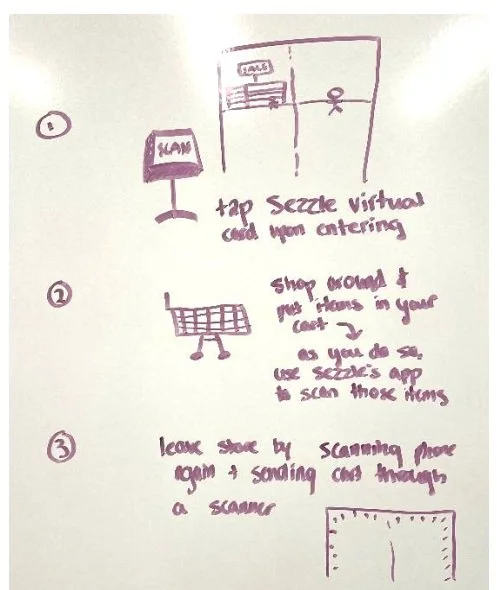 1
SALE
SCAN
tap Sezzle virtual
card upon entering
2
Shop around &
put items in your
cart
as you do so,
use sezzle's app
to scan those items
3
leave store by scanning phone
again + sending cart through
a scanner